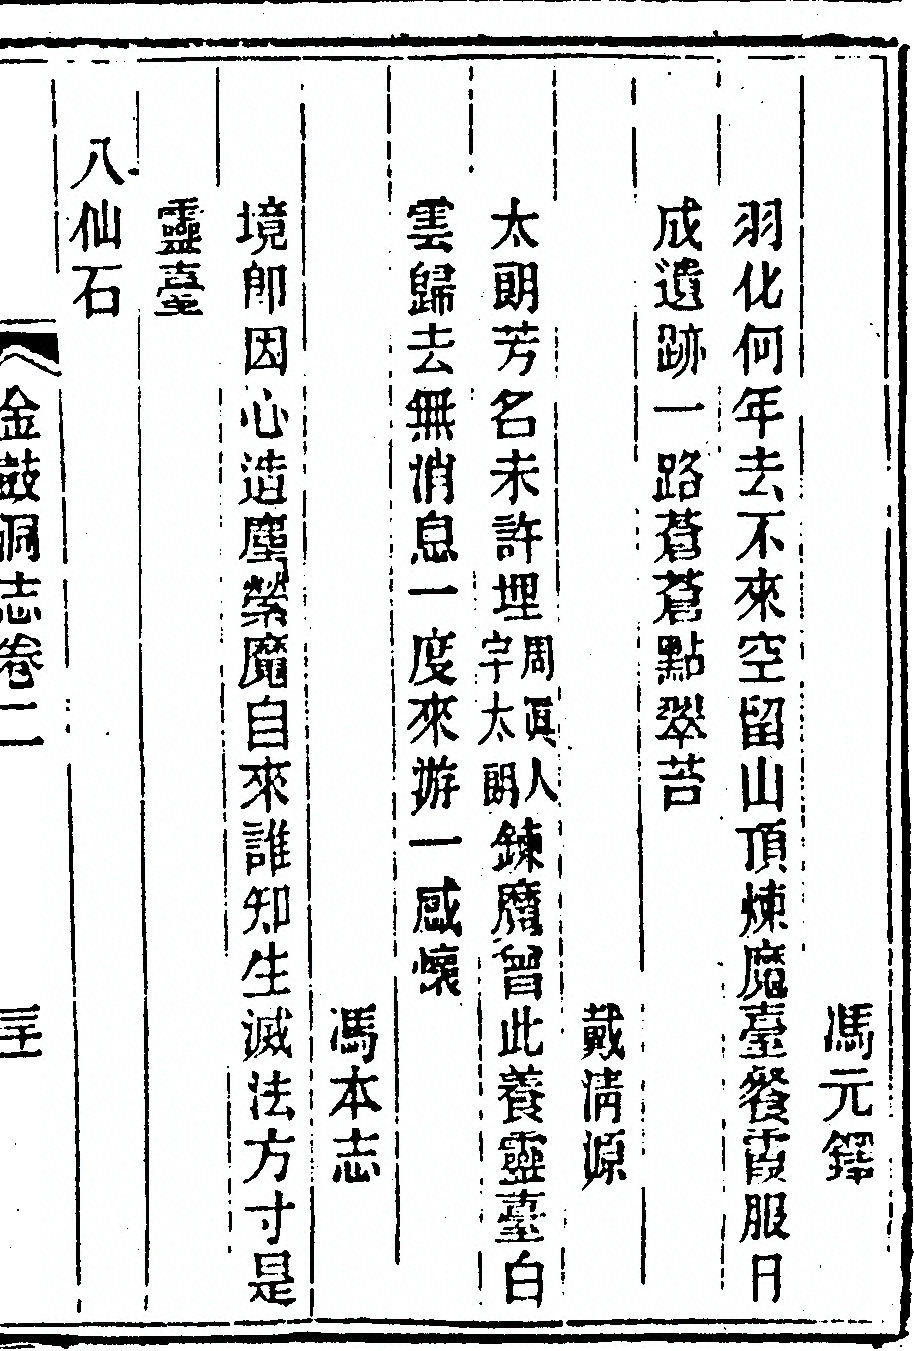 馮元鐸
羽化何年去不來空留山頂煉魔臺餐霞服日
成遺跡一路蒼蒼點翠苔
戴清源
太朗芳名未許埋周眞人字太朗鍊魔曾此養靈臺白
雲歸去無消息一度來游一感懷
馮本志
境卽因心造塵縈魔自來誰知生滅法方寸是
靈臺
八仙石
金鼓洞志卷二 三十